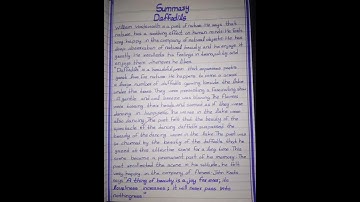 Summary
Daffodils
William Wordsworth is a poet of nature. He says that
nature has a soothing effect on human mind. He feels
very happy in the company of natural objects. He has
keen observation of natural beauty and he enjoys it
greatly. He recollects his feelings in tranquility and
enjoys them whenever he likes.
"Daffodils" is a beautiful poem that expresses poet's
great love for nature. He happens to come a scene
a large number of daffodils growing beside the lake
under the trees. They were presenting a fascinating view.
A gentle and cool breeze was blowing. The flowers
were tossing their heads and seemed as if they were
dancing in happiness. The waves in the lake were
also dancing. The poet felt that the beauty of the
spectacle of the dancing daffodils surpassed the
beauty of the dancing waves in the lake. The poet was
so charmed by the beauty of the daffodils that he
gazed at this attractive scene for a long time. This
scene became a permanent part of his memory. The poet
recollected the scene in his solitude, he felt
very happy in the company of flowers. John Keats
says "A thing of beauty is a joy for ever, its
loveliness increases; it will never pass into
nothingness"